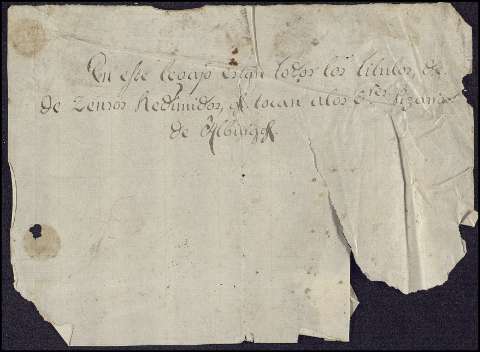 En este legajo estan todos los titulos, de
de Zensos Redimidos, q tocan a los S.res Lizana
de